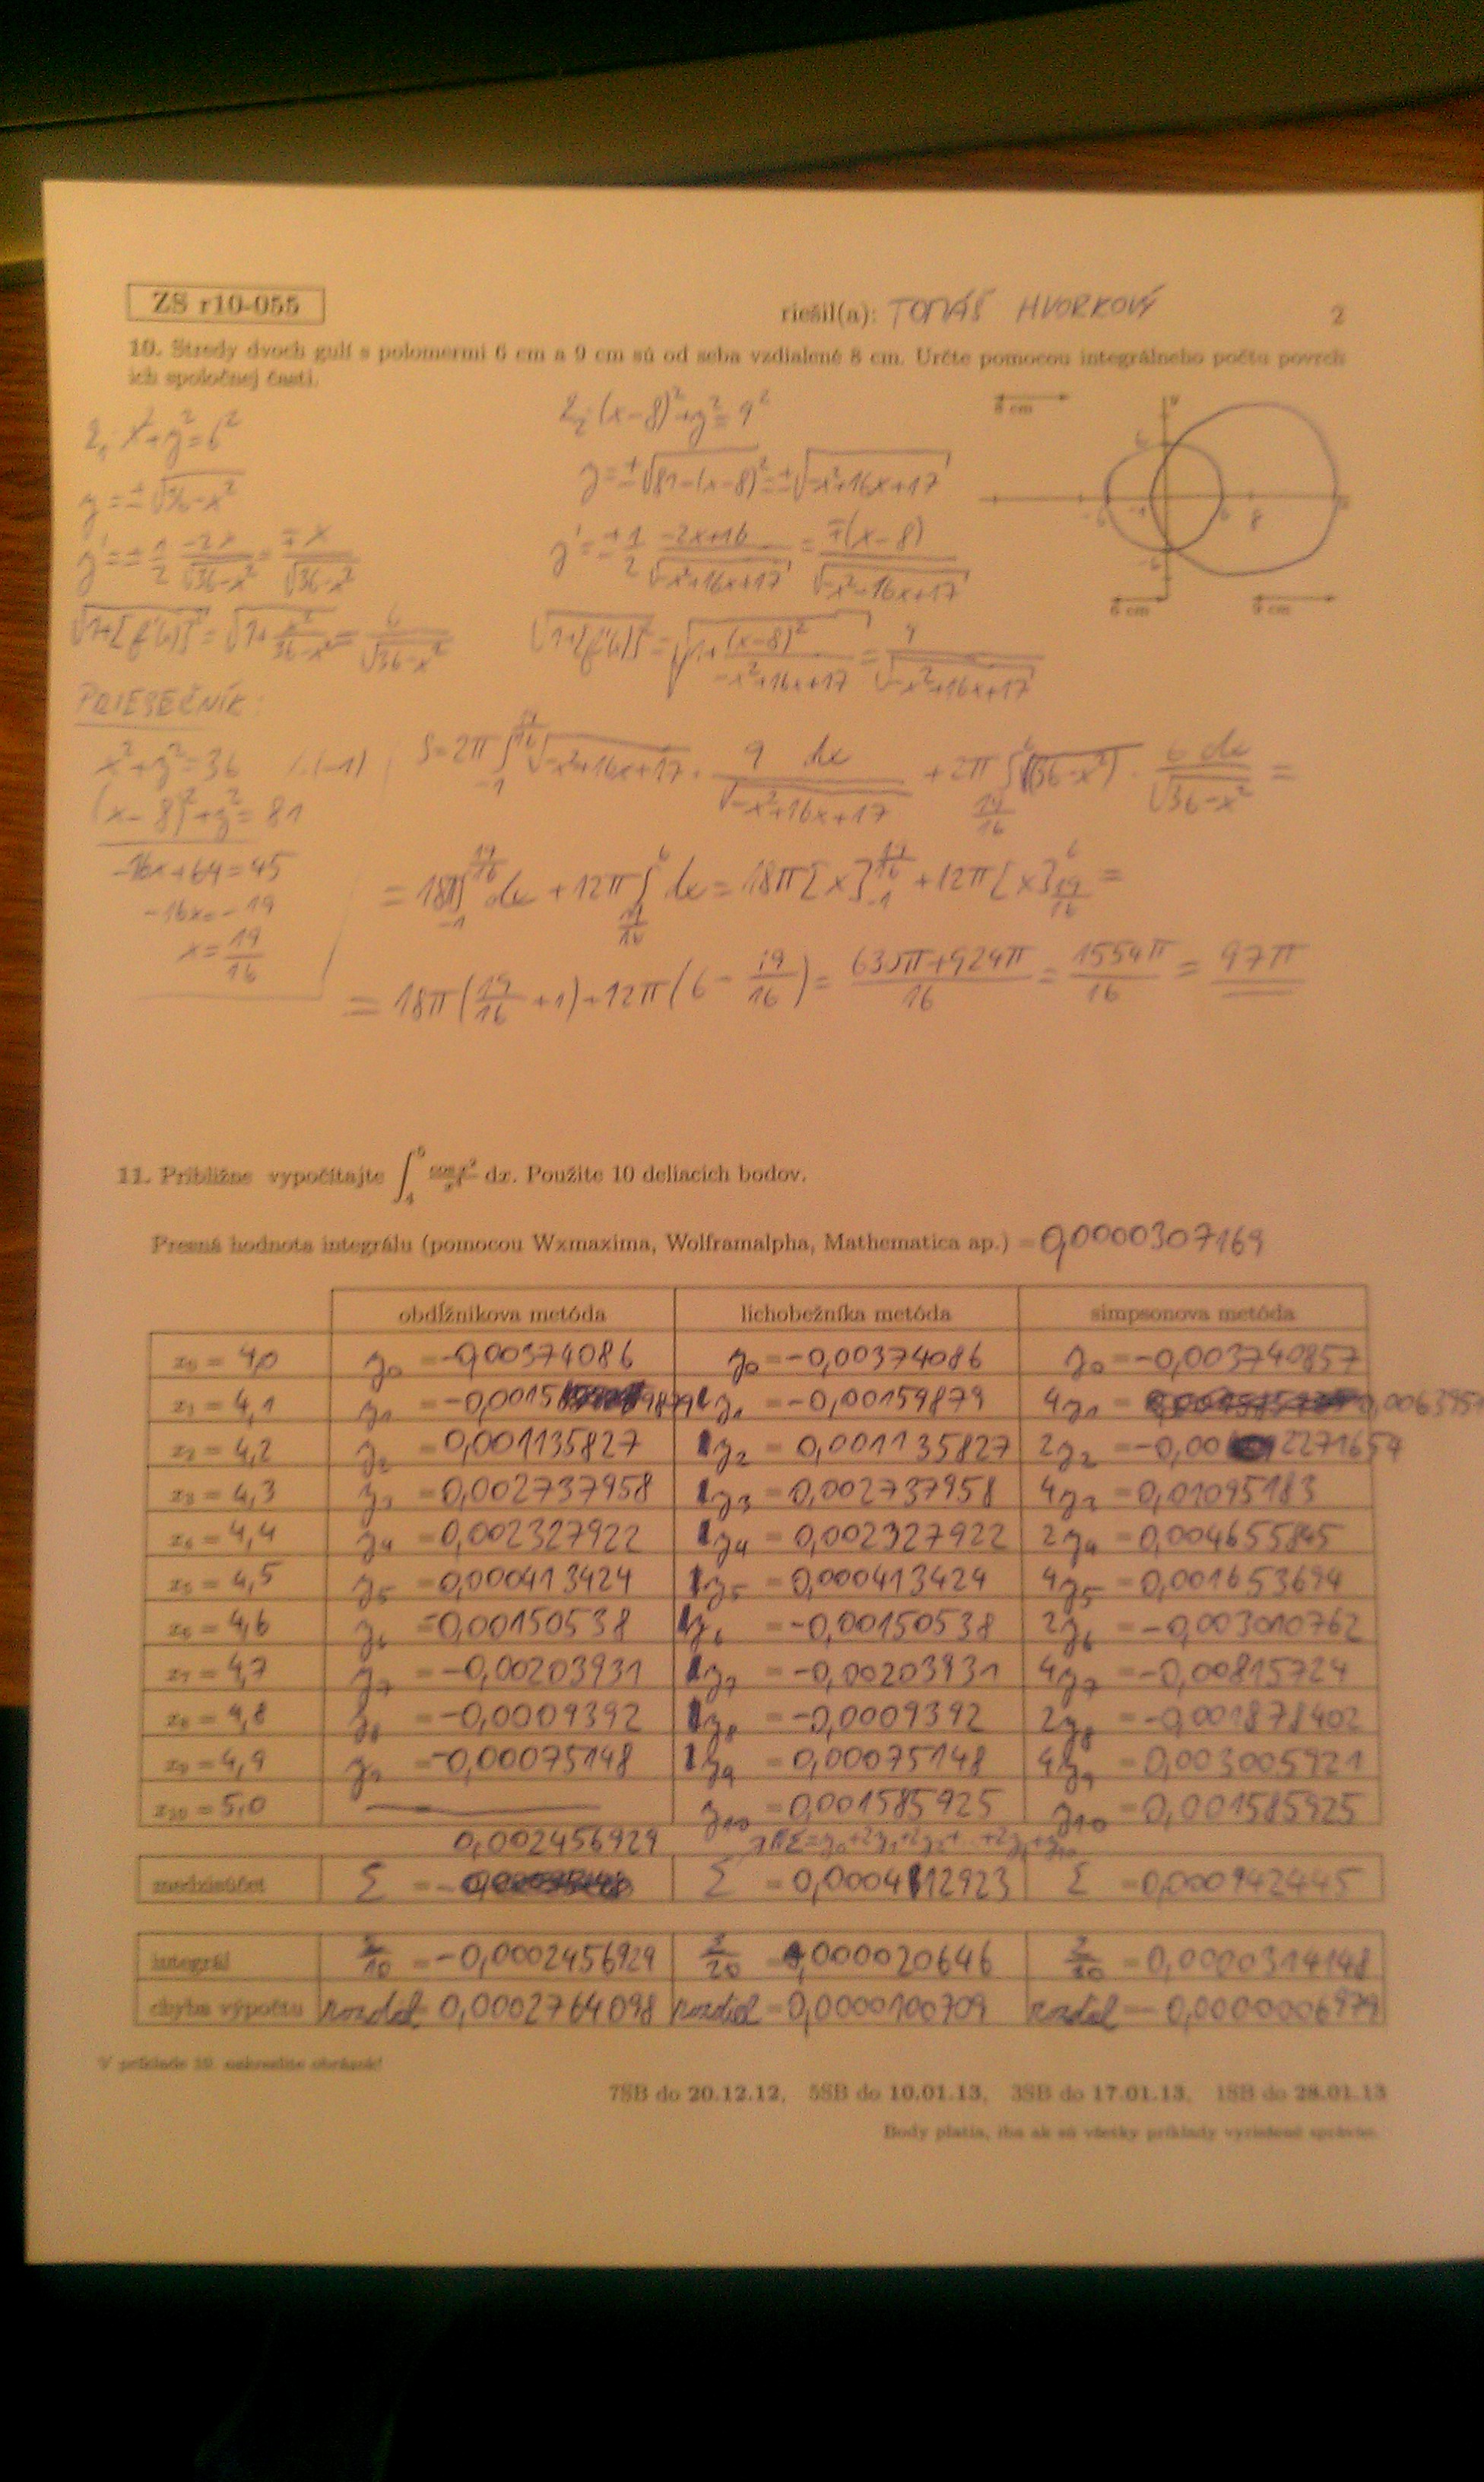 ZS r10-055
riešil(a): TOMÁŠ HVORKOVÝ
2
10. Stredy dvoch gulí s polomermi 6 cm a 9 cm sú od seba vzdialené 8 cm. Určte pomocou integrálneho počtu povrch
ich spoločnej časti.
x²+y²=6²
(x-8)²+y²=9²
8 cm
y=±√36-x²
y=±√81-(x-8)²=±√-x²+16x+17
y'=±1/2 -2x/√36-x² = ∓x/√36-x²
y'=±1/2 -2x+16/√-x²+16x+17 = ∓(x-8)/√-x²+16x+17
6 cm 9 cm
√1+[f'(x)]² = √1+x²/36-x² = 6/√36-x²
√1+[f'(x)]² = √1+(x-8)²/-x²+16x+17 = 9/√-x²+16x+17
PRIESEČNÍK:
x²+y²=36 /.(-1)
(x-8)²+y²=81
-16x+64=45
-16x=-19
x=19/16
S=2π∫₋₁^19/16 √-x²+16x+17 . 9 dx/√-x²+16x+17 + 2π∫_19/16^6 √(36-x²) . 6 dx/√36-x² =
= 18π∫₋₁^19/16 dx + 12π∫_19/16^6 dx = 18π[x]₋₁^19/16 + 12π[x]_19/16^6 =
= 18π(19/16+1)+12π(6-19/16) = 630π+924π/16 = 1554π/16 = 97π
11. Približne vypočítajte ∫ dx. Použite 10 deliacich bodov.
Presná hodnota integrálu (pomocou Wxmaxima, Wolframalpha, Mathematica ap.) = 0,0000307169
obdĺžnikova metóda lichobežníka metóda simpsonova metóda
x₀ = 4,0 y₀ = -0,00374086 y₀ = -0,00374086 y₀ = -0,003740857
x₁ = 4,1 y₁ y₁ = -0,00159879 4y₁
x₂ = 4,2 y₂ = 0,001135827 y₂ = 0,001135827 2y₂
x₃ = 4,3 y₃ = 0,002737958 y₃ = 0,002737958 4y₃ = 0,01095183
x₄ = 4,4 y₄ = 0,002327922 y₄ = 0,002327922 2y₄ = 0,004655845
x₅ = 4,5 y₅ = 0,000413424 y₅ = 0,000413424 4y₅ = 0,001653694
x₆ = 4,6 y₆ =0,00150538 y₆ = -0,00150538 2y₆ = -0,003010762
x₇ = 4,7 y₇ = -0,00203931 y₇ = -0,00203931 4y₇ = -0,00815724
x₈ = 4,8 y₈ = -0,0009392 y₈ = -0,0009392 2y₈ = -0,001878402
x₉ = 4,9 y₉ =-0,00075148 y₉ = 0,00075148 4y₉ = 0,003005921
x₁₀ = 5,0 y₁₀ = 0,001585925 y₁₀ = 0,001585925
0,002456929
medzisúčet Σ Σ = 0,000412923 Σ = 0,000942445
integrál Σ/10 = -0,0002456929 Σ/20 = 0,000020646 Σ/30 = 0,0000314148
chyba výpočtu rozdiel = 0,0002764098 rozdiel = 0,0000100709 rozdiel = -0,0000006979
V príklade 10. nakreslite obrázok!
7SB do 20.12.12, 5SB do 10.01.13, 3SB do 17.01.13, 1SB do 28.01.13
Body platia, iba ak sú všetky príklady vyriešené správne.